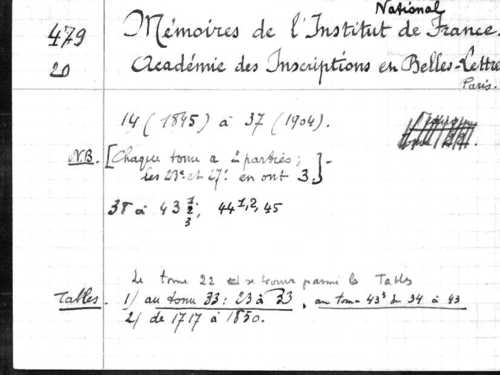 National
479 Mémoires de l'Institut de France.
20 Académie des Inscriptions en Belles-Lettre
Paris.
14 (1845) à 37 (1904).
N.B. [Chaque tome a 2 parties;
les 23e et 27e en ont 3.]-
38 à 43 1/2/3; 44 1,2, 45
Le tome 22 se trouve parmi les Tables
Tables. 1/ au tome 33: 23 à 33, au tome 43 3 de 34 à 43
2/ de 1717 à 1850.